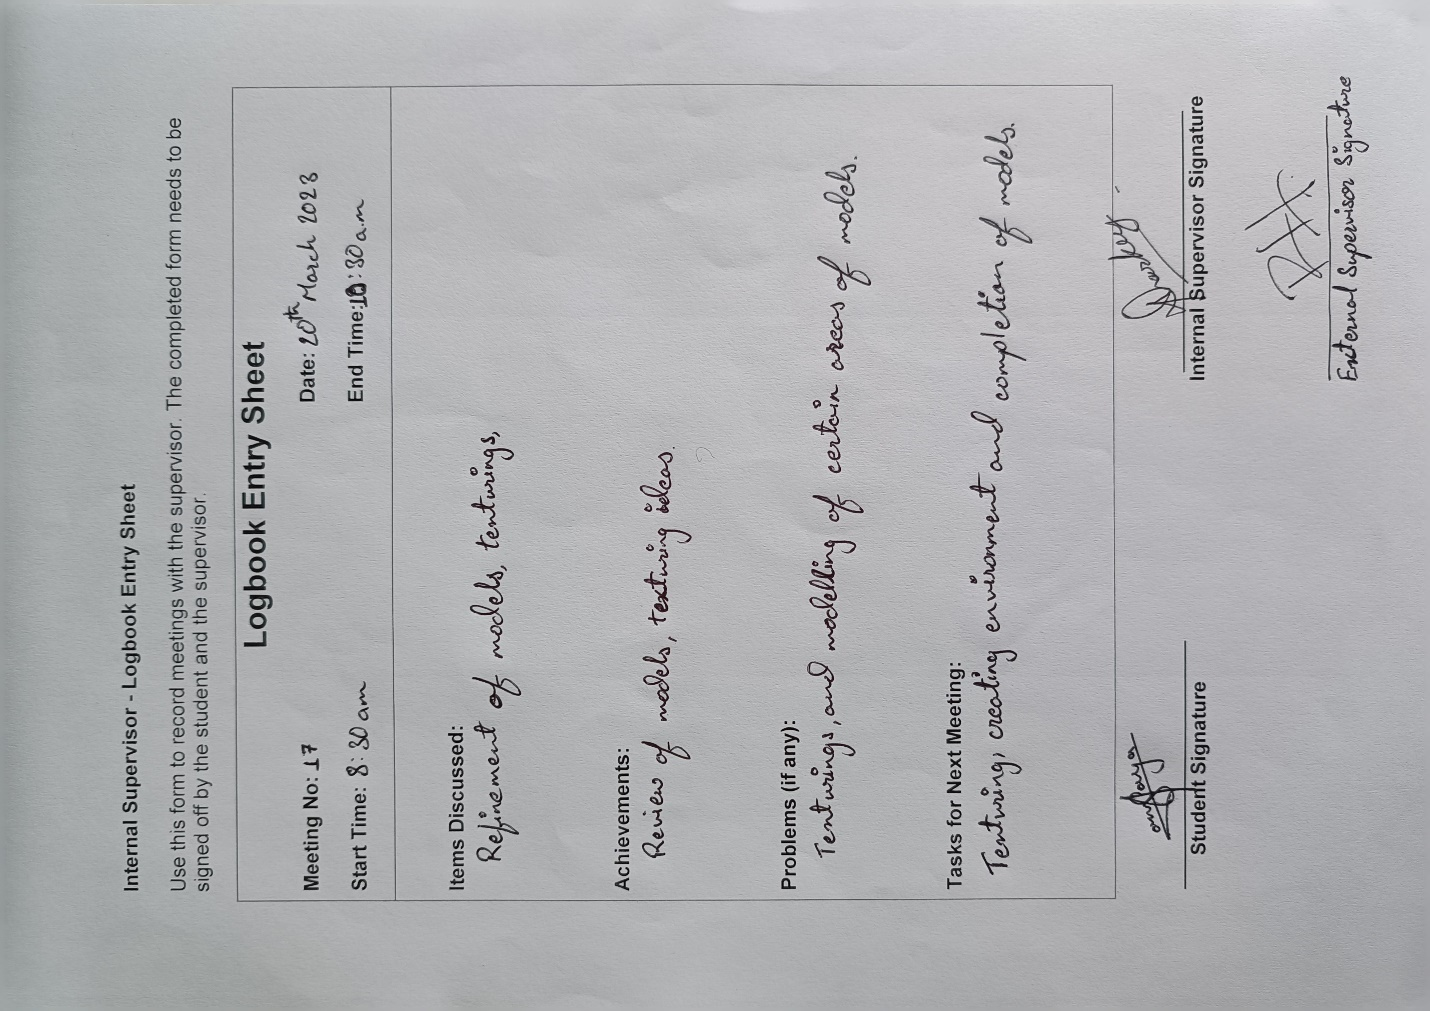 Internal Supervisor - Logbook Entry Sheet
Use this form to record meetings with the supervisor. The completed form needs to be
signed off by the student and the supervisor.
Logbook Entry Sheet
Meeting No: 17 Date: 20th March 2023
Start Time: 8:30 am End Time: :30 a.m
Items Discussed:
Refinement of models, texturings,
Achievements:
Review of models, texturing ideas.
Problems (if any):
Texturings, and modelling of certain areas of models.
Tasks for Next Meeting:
Texturing, creating environment and completion of models.
Student Signature Internal Supervisor Signature
External Supervisor Signature